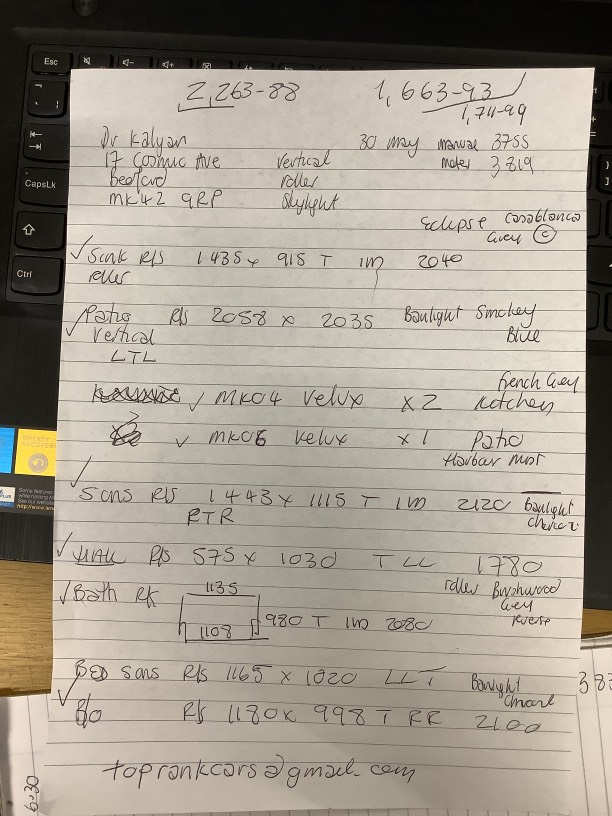 2,263-88 1,663-93
1,711-99
Dr Kalyan 30 may manual 3755
17 Cosmic Ave vertical motor 3819
Bedford roller
MK42 9RP Skylight
Eclipse casablanca
Grey C
✓ Sink R/S 1435 x 915 T 1m 2040
roller
✓ Patio R/S 2058 x 2035 Banlight Smokey
vertical Blue
LTL
French Grey
✓ MK04 Velux x2 Kitchen
✓ MK06 Velux x1 Patio
Harbour Mist
✓
Sons R/S 1443 x 1115 T 1m 2120 Banlight
RTR
✓ R/S 575 x 1030 T LL 1780
✓ Bath RK 1135 roller Brushwood
Grey
980 T 1m 2080 reverse
1108
Sons R/S 1165 x 1020 LLT Banlight 383
✓
R/S 1180 x 998 T RR 2100
toprankcars@gmail.com
6.30
Esc
CapsLk
Ctrl